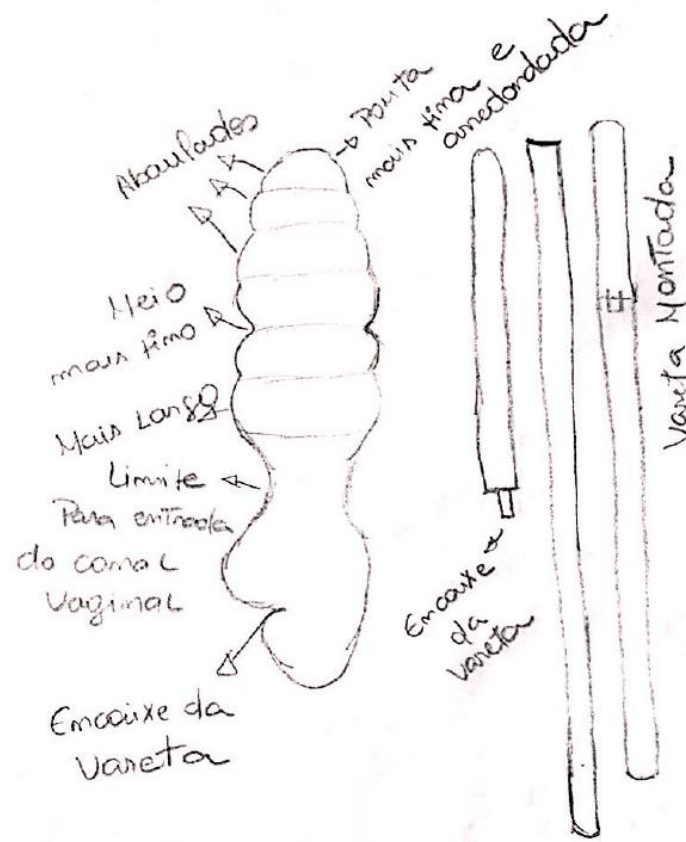 Abaulados
Ponta
mais fina e
arredondada
Meio
mais fino
Mais Largo
Limite
Para entrada
do canal
Vaginal
Encaixe da
Vareta
Encaixe
da
vareta
Vareta Montada